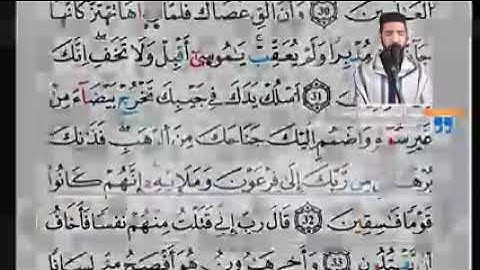 الْعَالَمِينَ ٣٠ وَأَنْ أَلْقِ عَصَاكَ فَلَمَّا رَءَاهَا تَهْتَزُّ كَأَنَّهَا
جَآنٌّ مُدْبِرًا وَلَمْ يُعَقِّبْ يَٰمُوسَىٰٓ أَقْبِلْ وَلَا تَخَفْ إِنَّكَ
٣١ اسْلُكْ يَدَكَ فِي جَيْبِكَ تَخْرُجْ بَيْضَآءَ مِنْ
غَيْرِ سُوٓءٍ وَاضْمُمْ إِلَيْكَ جَنَاحَكَ مِنَ الرَّهْبِ فَذَٰنِكَ
بُرْهَٰنَانِ مِن رَّبِّكَ إِلَىٰ فِرْعَوْنَ وَمَلَإِيْهِۦٓ إِنَّهُمْ كَانُوا
قَوْمًا فَاسِقِينَ ٣٢ قَالَ رَبِّ إِنِّي قَتَلْتُ مِنْهُمْ نَفْسًا فَأَخَافُ
أَن يَقْتُلُونِ ٣٣ وَأَخِي هَٰرُونُ هُوَ أَفْصَحُ مِنِّي لِسَانًا